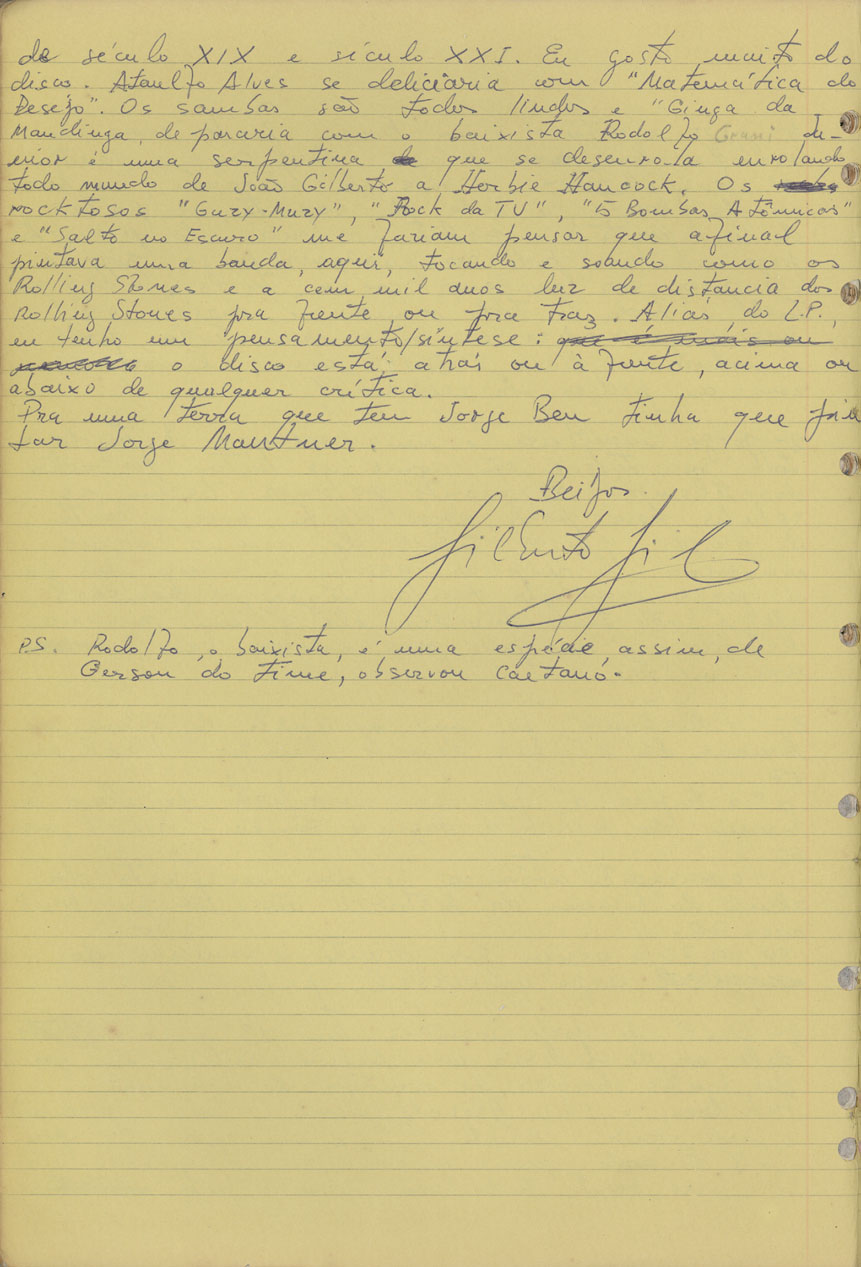 do século XIX e século XXI. Eu gosto muito do
disco. Ataulfo Alves se deliciaria com "Matemática do
Desejo". Os sambas são todos lindos e "Ginga da
Mandinga, de parceria com o baixista Rodolfo Grani Ju-
nior é uma serpentina que se desenrola enrolando
todo mundo de João Gilberto a Herbie Hancock. Os
rocktosos "Guzy-Muzy", "Rock da TV", "5 Bombas Atômicas"
e "Salto no Escuro" me fariam pensar que afinal
pintava uma banda, aqui, tocando e soando como os
Rolling Stones e a cem mil anos luz de distância dos
Rolling Stones pra frente ou pra traz. Aliás, do L.P.,
eu tenho um pensamento/síntese: que é mais ou
o disco está atrás ou à frente, acima ou
abaixo de qualquer crítica.
Pra uma terra que tem Jorge Ben tinha que
tar Jorge Mautner.
Beijos.
Gilberto Gil
P.S. Rodolfo, o baixista, é uma espécie, assim, de
Gerson do time, observou Caetano.